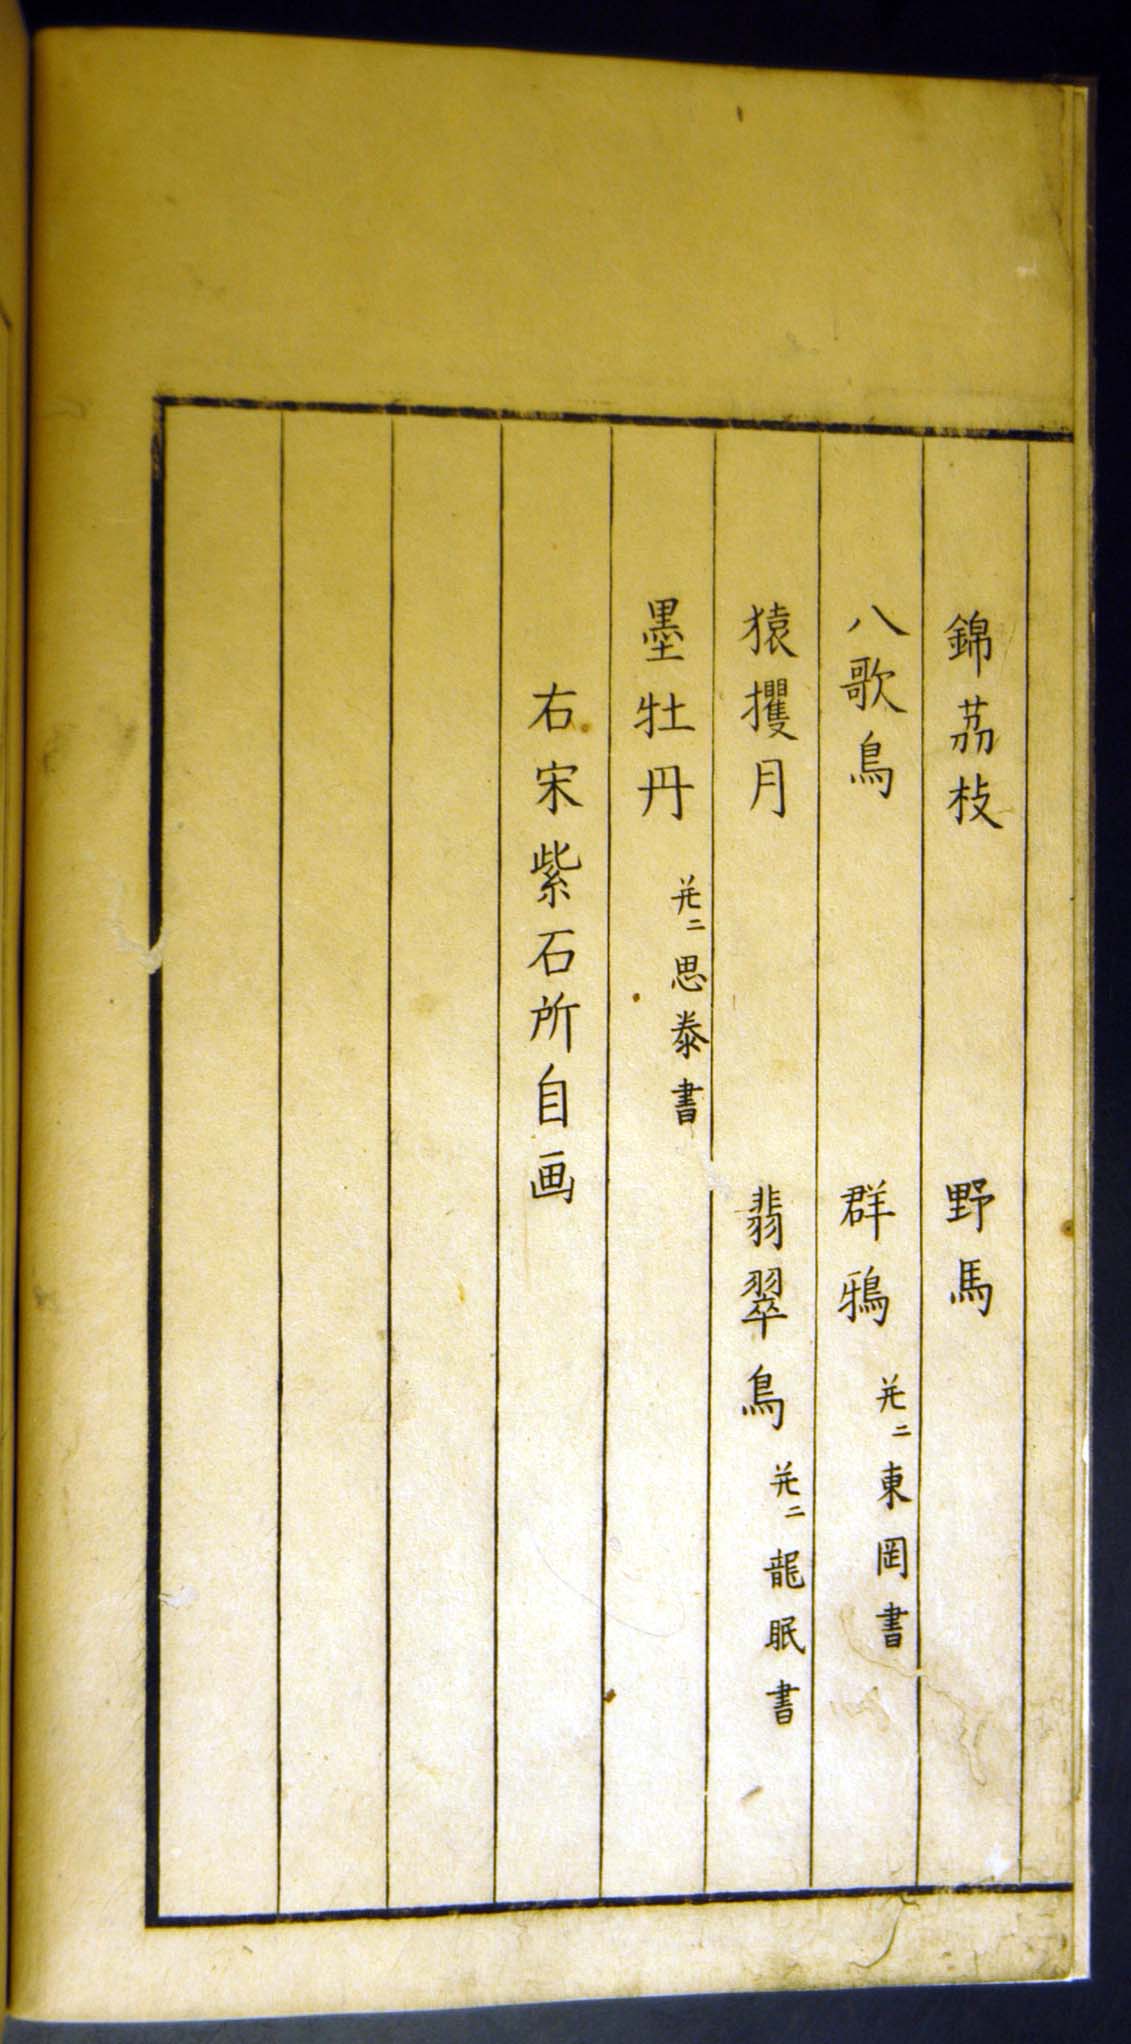 錦茘枝　野馬
八歌鳥　群鴉　并二東岡書
猿攫月　翡翠鳥　并二龍眠書
墨牡丹　并二思泰書
右宋紫石所自画